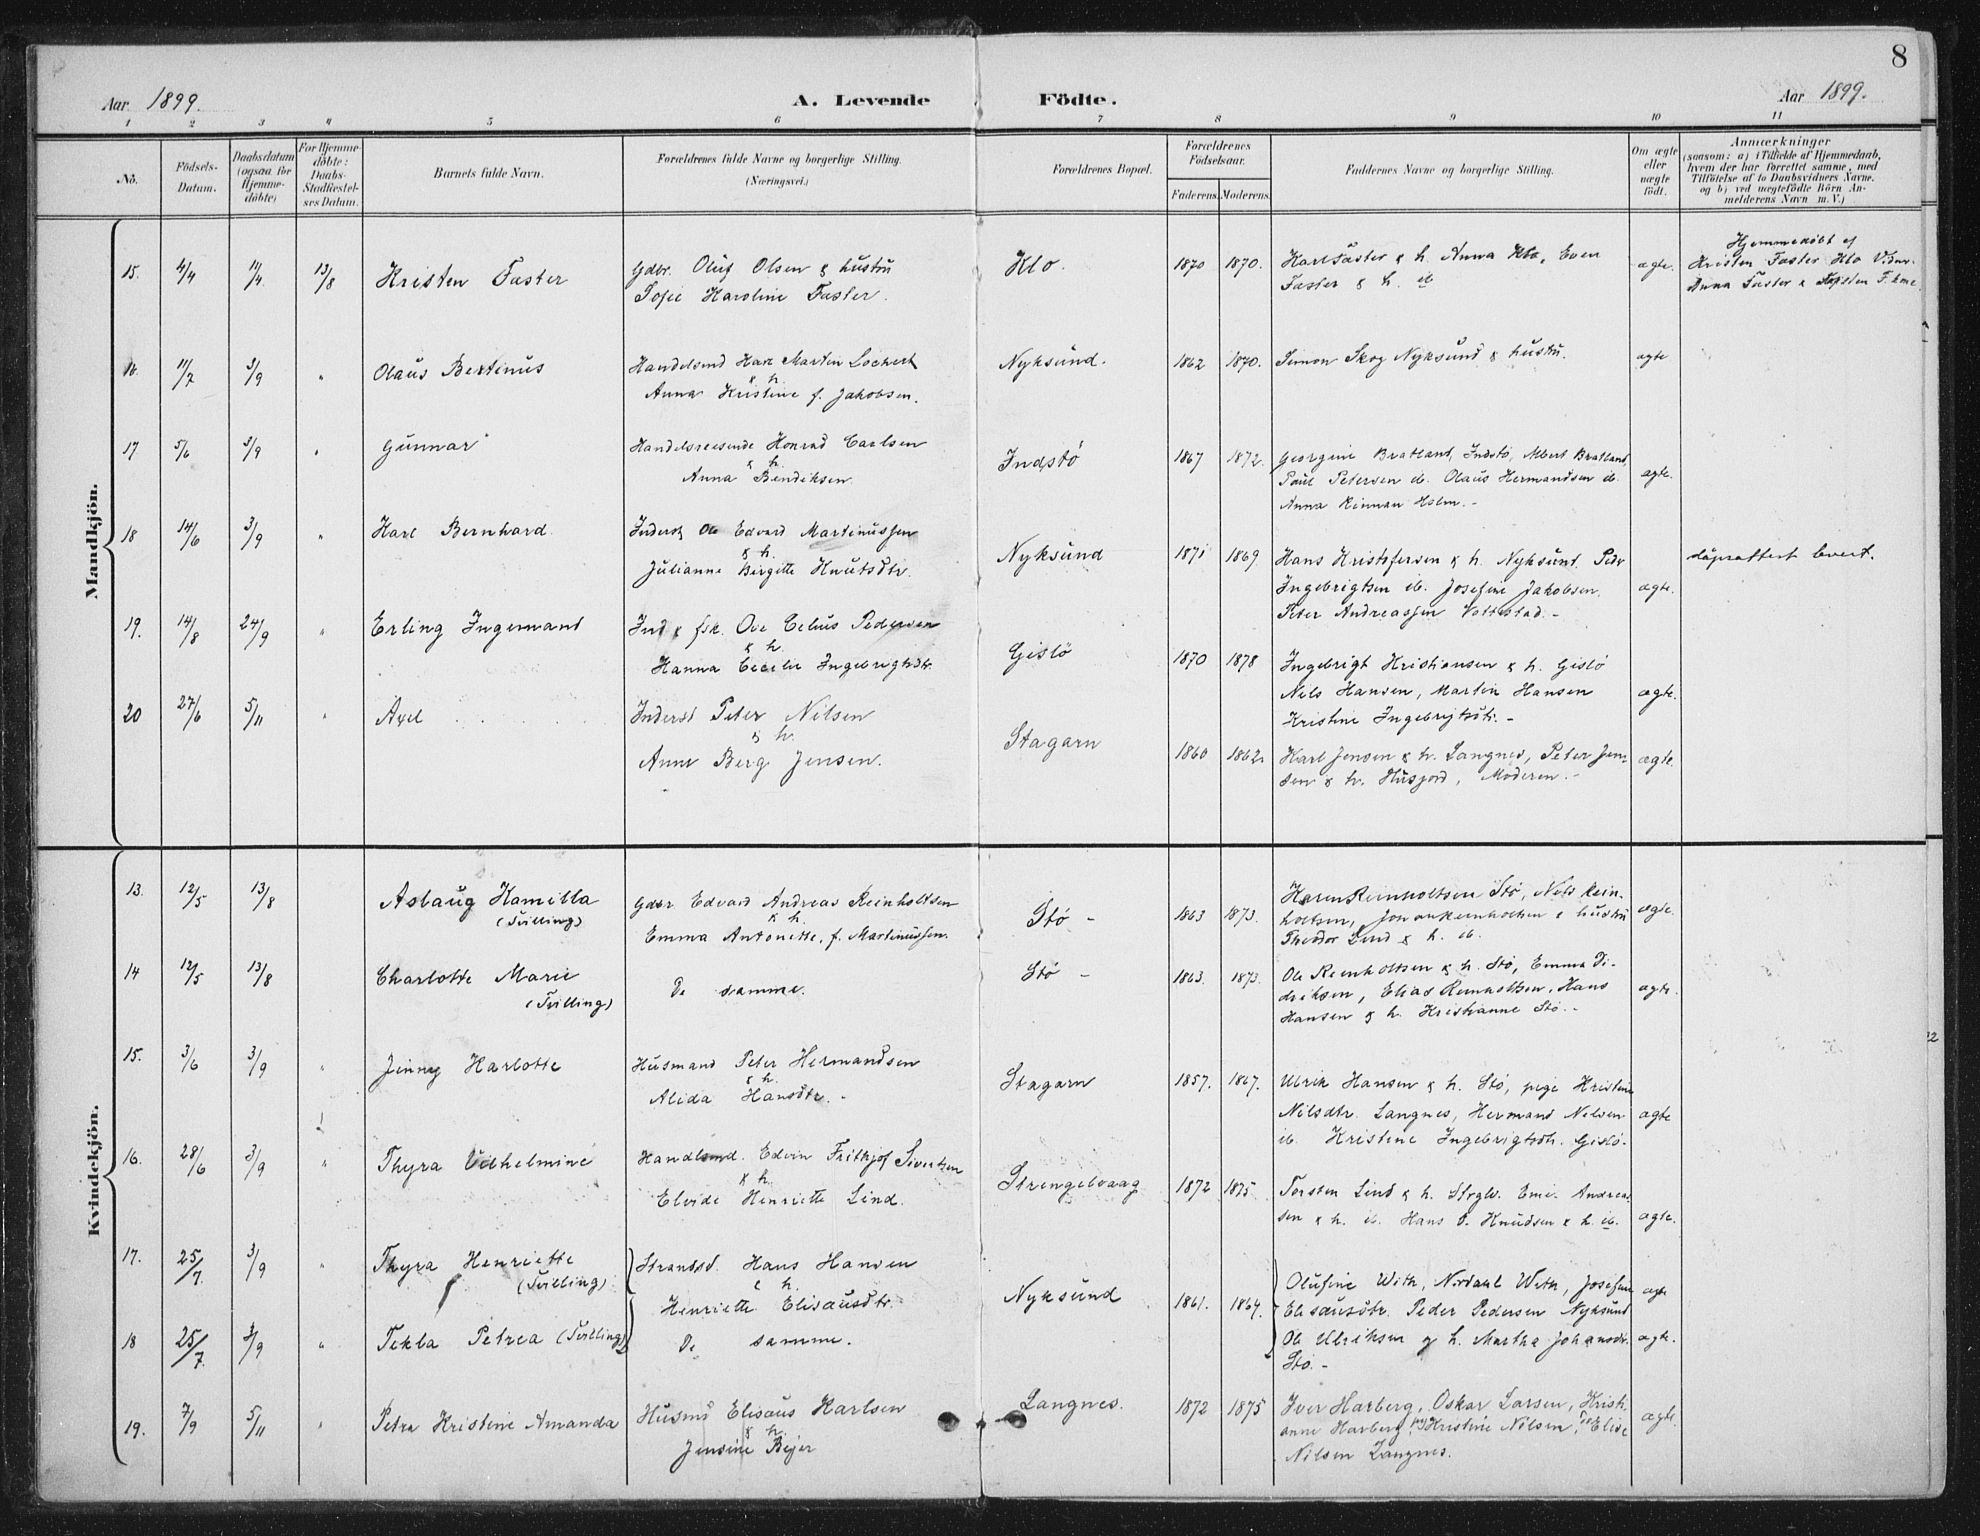 8
Aar 1899. A. Levende Födte. Aar 1899.
1 2 3 4 5 6 7 8 9 10 11
No. Födsels-Datum. Daabsdatum (ogsaa for Hjemme-döbte) For Hjemme-döbte: Daabs-Stadfæstel-ses Datum. Barnets fulde Navn. Forældrenes fulde Navne og borgerlige Stilling. (Næringsvei.) Forældrenes Bopæl. Forældrenes Födselsaar. Faderens. Moderens. Faddernes Navne og borgerlige Stilling. Om ægte eller uægte födt. Anmærkninger
(saasom: a) i Tilfælde af Hjemmedaab, hvem der har forrettet samme, med Tilföielse af to Daabsvidners Navne, og b) ved uægtefödte Börn An-melderens Navn m. V.)
Mandkjön.
15. 4/4 11/4 13/8 Kristen Faster Gdbr. Oluf Olsen & hustru Klo. 1870 1870. Karl Faster & h. Anna Klo, Even ægte. Hjemmedöbt af
Sofie Karoline Faster. Faster & h. ib Kristen Faster Klo Vidner
Anna Faster &
16. 11/7 3/9 " Olaus Bertinus Handelsmd Karl Martin Lockert Nyksund. 1862 1870. Simon Skog Nyksund & hustru. ægte
& h.
Anna Kristine f. Jakobsen.
17 5/6 3/9 " Gunnar Handelsreisende Konrad Carlsen Indstö 1867 1872. Georgine Bratland, Indstö, Albert Bratland,
& h. Paul Petersen ib. Olaus Hermandsen ib. ægte.
Anna Bendiksen. Anna Rinnan Holm. -
18 14/6 3/9 " Karl Bernhard Inderst Ole Edvard Martinussen Nyksund 1871 1869. Hans Kristofersen & h. Nyksund. Peder
& h. Ingebrigtsen ib. Josefine Jakobsen. ægte.
Julianne Birgitte Knutsdtr. Peter Andreassen Vottestad. -
19. 14/8 24/9 " Erling Ingemand Ind & fsk. Ove Celius Pedersen Gislö 1870 1878 Ingebrigt Kristiansen & h. Gislö
& h. Nils Hansen, Martin Hansen ægte.
Hanna Cecilie Ingebrigtsdtr. Kristine Ingebrigtsdtr. -
20 27/6 5/11 " Axel Inderst Peter Nilsen Stagarn 1860 1862 Karl Jensen & h. Langnes, Peter Jen- ægte.
& h. sen & h. Husjord, Moderen. -
Anne Berg Jensen.
Kvindekjön.
13. 12/5 13/8 Aslaug Kamilla Gdbr Edvard Andreas Reinholtsen Stö - 1863 1873. Karen Reinholtsen Stö, Nils Rein- ægte.
(Tvilling) & h. holtsen, Johan Reinholtsen & hustru
Emma Antonette, f. Martinussen. Theodor Lind & h. ib.
14 12/5 13/8 Charlotte Marie De samme. Stö - 1863. 1873. Ole Reinholtsen & h. Stö, Emma Di-
(Tvilling) driksen, Elias Reinholtsen, Hans ægte.
Hansen & h. Kristianne Stö. -
15. 3/6 3/9 " Jenny Karlotte Husmand Peter Hermandsen Stagarn 1857. 1867. Ulrik Hansen & h. Stö, pige Kristine
& h. Nilsdtr. Langnes, Hermand Nilsen ægte
Alida Hansdtr. - ib. Kristine Ingebrigtsdtr. Gislö.
16. 28/6 3/9 " Thyra Vilhelmine Handlsmd. Edvin Frithjof Sivertsen Strengelvaag 1872 1875. Torsten Lind & h. Strglv. Andreas
& h. sen & h. ib. Hans Knudsen & h. ib. ægte.
Elvide Henriette Lind.
17. 25/7 3/9 " Thyra Henriette Strandsd. Hans Hansen Nyksund 1861. 1864. Olufine With, Nordahl With, Josefine ægte
(Tvilling) & h. Elisæusdtr. Peder Pedersen Nyksund
Henriette Elisæusdtr. Ole Ulriksen & h. Martha Johansdtr.
18 25/7 3/9 " Tekla Petrea (Tvilling) De samme. Stö. - ægte.
19. 7/9 5/11 " Petra Kristine Amanda Husmd Elisæus Karlsen Langnes. 1872 1875 Iver Harberg, Oskar Larsen, Kristi- ægte.
& h. anne Harberg, Kristine Nilsen, Elise
Jensine Beyer Nilsen Langnes.